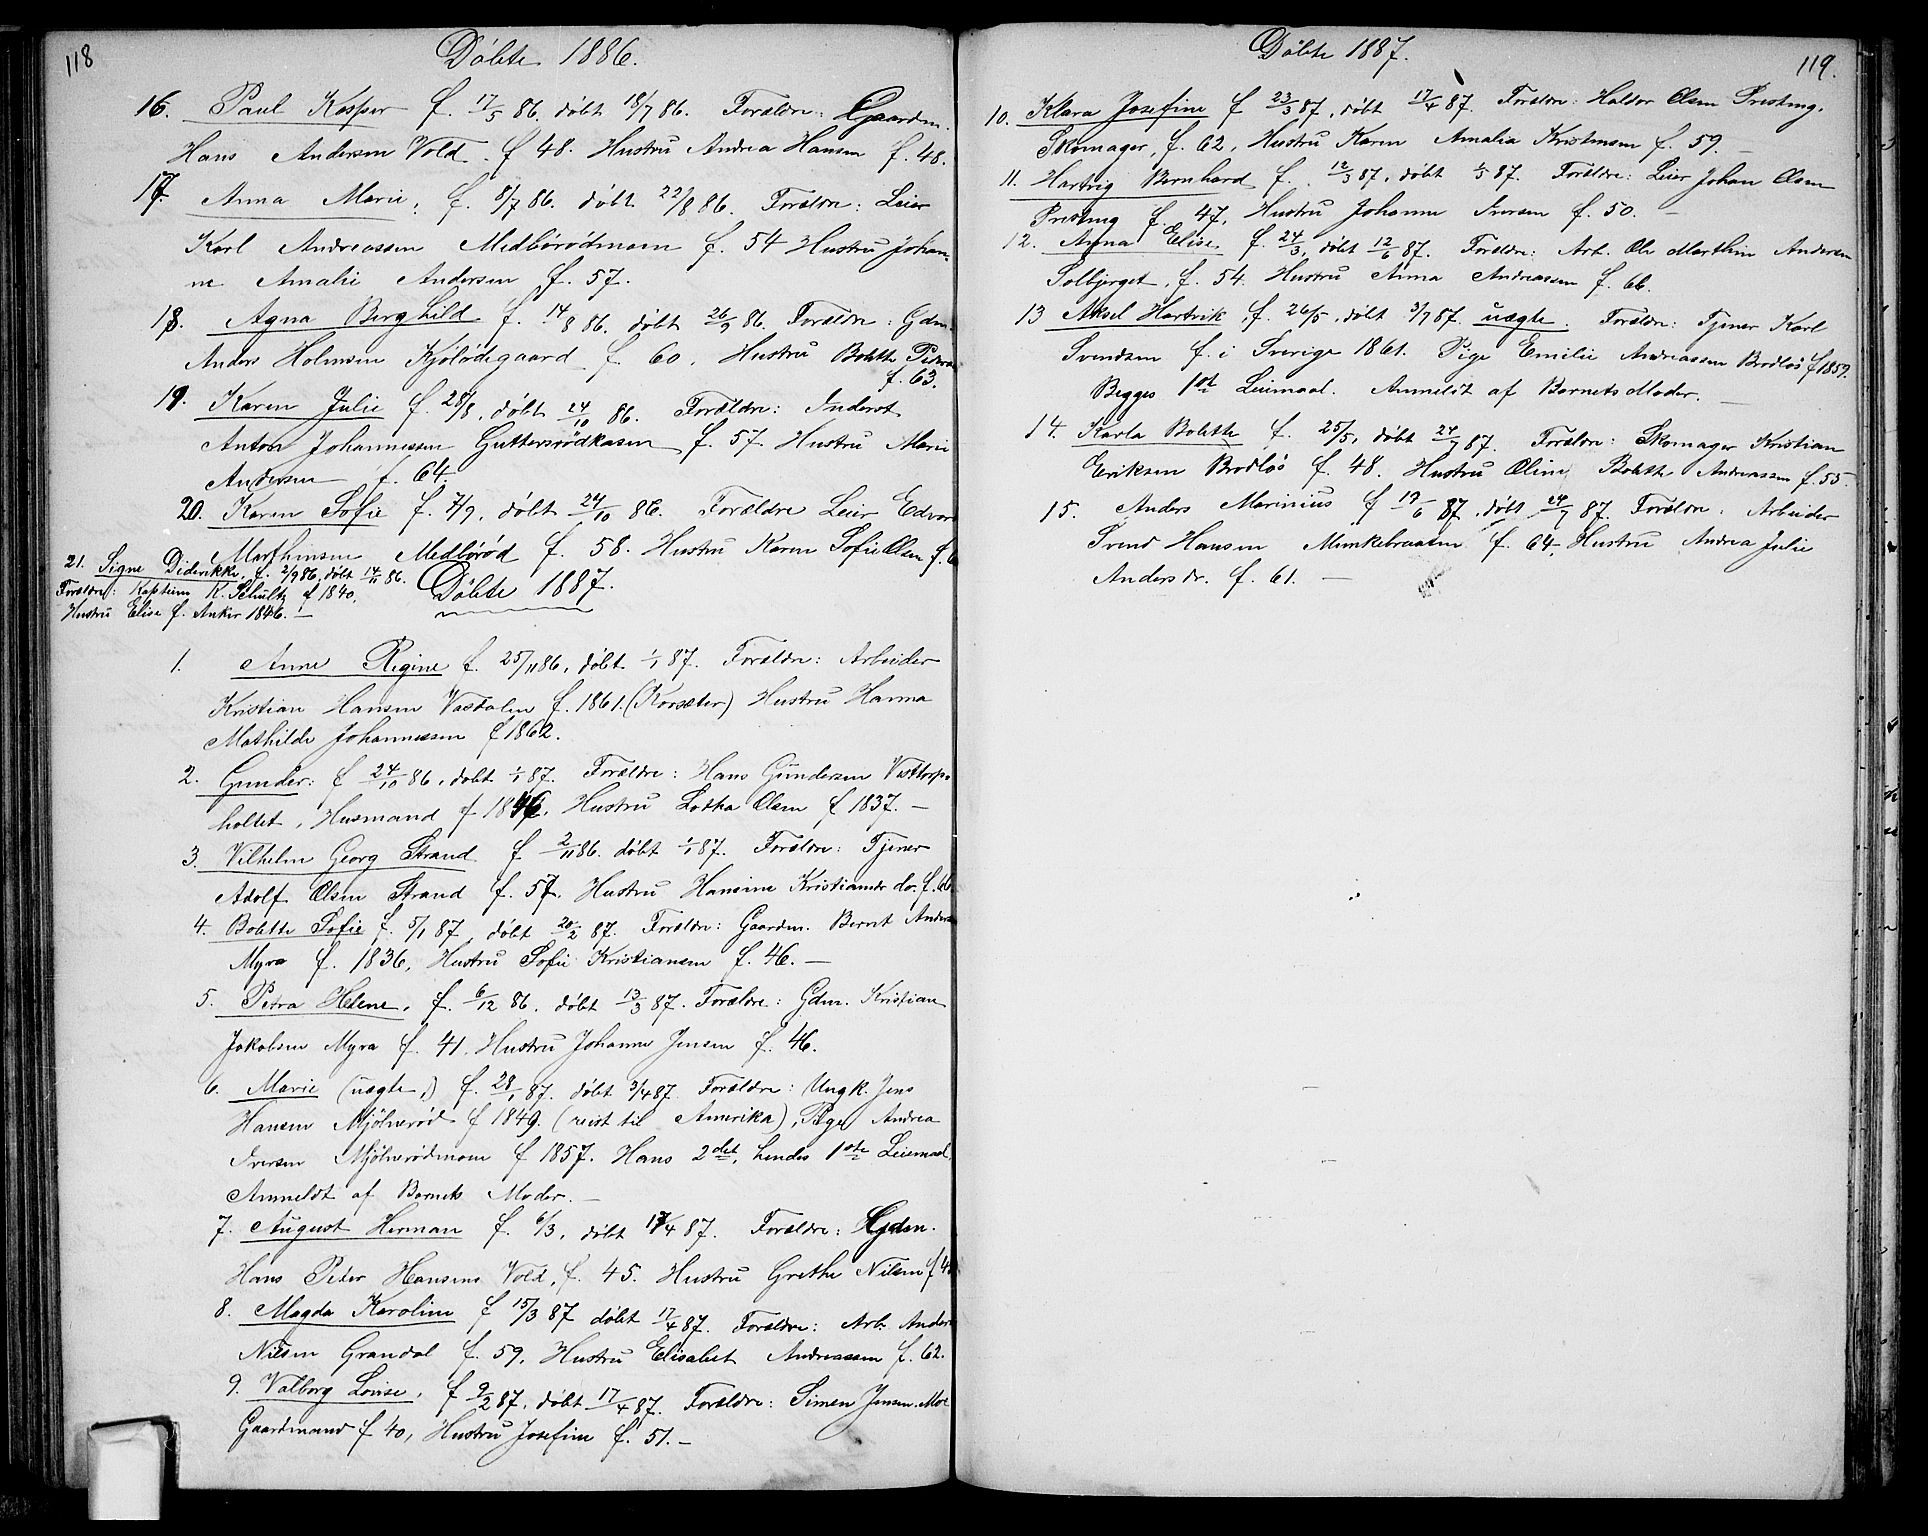 118
Döbte 1886.
16. Paul Kasper f. 17/5 86. döbt 18/7 86. Forældre: Gaardm.
Hans Andersen Vold. f 48. Hustru Andrea Hansen f. 48.
17. Anna Marie, f. 8/7 86. döbt 22/8 86. Forældre: Leier
Karl Andreassen Medbörödmoen f. 54 Hustru Johan-
ne Amalie Andersen f. 57.
18. Agna Berghild f. 14/8 86. döbt 26/9 86. Forældre: Gdm.
Anders Holmsen Kjolödegaard f. 60. Hustru Bolette
f. 63.
19. Karen Julie f. 28/8, döbt 24/10 86. Forældre: Inderst
Anton Johannessen Guttersrödkasen f. 57 Hustru Marie
Andersen f. 64.
20. Karen Sofie f. 7/9, döbt 24/10 86. Forældre Leier Edvar
Marthinsen Medböröd f. 58. Hustru Karen Sofie Olsen f. 6
21. Signe Diderikke f. 2/9 86. döbt 14/11 86.
Forældre: Kaptein K. Schultz f 1840.
Hustru Elise f. Anker 1846. —
Döbte 1887.
1. Anne Regine f. 25/11 86, döbt 1/1 87. Forældre: Arbeider
Kristian Hansen Vasdalen f. 1861. (Korsæter) Hustru Hanna
Mathilde Johannessen f 1862.
2. Gunder: f 24/10 86, döbt 1/1 87. Forældre: Hans Gundersen Vesttorp-
holtet, Husmand f 1846, Hustru Lotha Olsen f 1837. —
3. Vilhelm Georg Strand f 2/11 86. döbt 1/1 87. Forældre: Tjener
Adolf Olsen Strand f. 57, Hustru Hansine Kristiansdr. f. 66
4. Bolette Sofie f. 5/1 87 döbt 20/2 87. Forældre: Gaardm. Bernt Anders
Myra f. 1836, Hustru Sofie Kristiansen f. 46. —
5. Petra Helene, f. 6/12 86. döbt 13/3 87. Forældre: Gdm. Kristian
Jakobsen Myra f. 41. Hustru Johanne Jensen f. 46.
6. Marie (uægte,) f. 28/1 87. döbt 3/4 87 Forældre: Ungk. Jens
Hansen Mjölneröd f 1849. (reist til Amerika), Pige Andrea
Iversen Mjölnerödmoen f 1857. Hans 2det, hendes 1ste Leiemaal.
Anmeldt af Barnets Moder. —
7. August Herman f. 6/3, döbt 17/4 87. Forældre: Gdm.
Hans Peder Hansen Vold, f. 45. Hustru Grethe Nilsen f 4
8. Magda Karoline f 15/3 87 döbt 17/4 87. Forældre: Arb. Anders
Nilsen Grandal f. 59, Hustru Elisabet Andreassen f. 62.
9. Valborg Lovise, f 9/2 87, döbt 17/4 87. Forældre: Simen Jensen Moe
Gaardmand f 40, Hustru Josefine f. 51. —
Döbte 1887.
119.
10. Klara Josefine f 23/3 87, döbt 17/4 87. Forældre: Haldor Olsen Presteng.
Skomager, f. 62, Hustru Karen Amalia Kristensen f. 59. —
11. Hartvig Bernhard f. 12/3 87, döbt 1/5 87. Forældre: Leier Johan Olsen
Presteng f. 47, Hustru Johanne Iversen f. 50. —
12. Anna Elise. f. 24/3, döbt 12/6 87. Forældre: Arb. Ole Marthin Andersen
Solbjerget, f. 54. Hustru Anna Andreassen f. 66.
13 Aksel Hartvik, f. 26/5, döbt 3/7 87. uægte. Forældre: Tjener Karl
Svendsen f. i Sverige 1861. Pige Emilie Andreassen Brodlös f 1859.
Begges 1ste Leiemaal. Anmeldt af Barnets Moder. —
14. Karla Bolette f. 25/5, döbt 24/7 87. Forældre: Skomager Kristian
Eriksen Brodlös f. 48. Hustru Oline Bolette Andreassen f. 55.
15. Anders Marinius f 19/6 87, döbt 24/7 87. Forældre: Arbeider
Svend Hansen Munkebraaten f. 64 Hustru Andrea Julie
Andersdr. f. 61. —